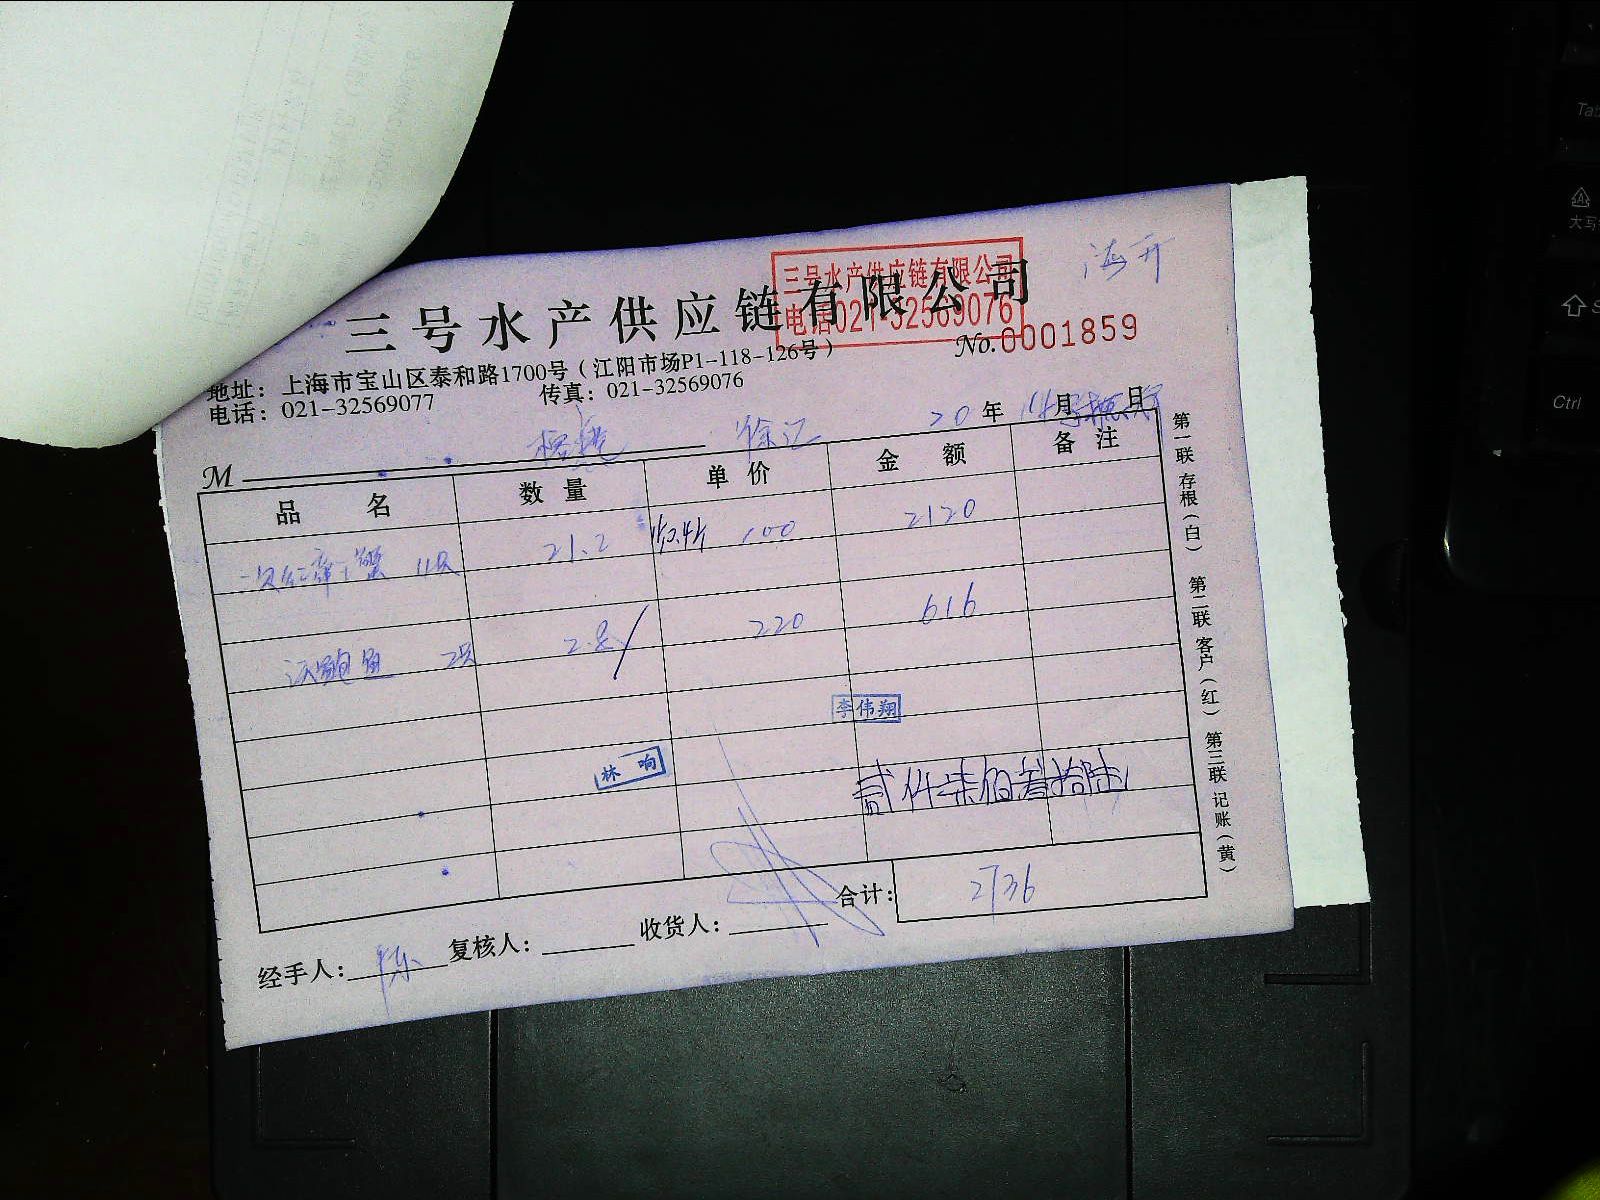 三号水产供应链有限公司
三号水产供应链有限公司
电话021-32569076
No.0001859
地址：上海市宝山区泰和路1700号（江阳市场P1-118-126号）
电话：021-32569077 传真：021-32569076
M 徐汇 20年 月 日
品名 数量 单价 金额 备注
11只 21.2 100 2120
鲍鱼 2.8 220 616
李伟翔
林响
贰仟柒佰叁拾陆
合计： 2736
经手人：陈 复核人： 收货人：
第一联存根（白） 第二联客户（红） 第三联记账（黄）
Tab
Ctrl